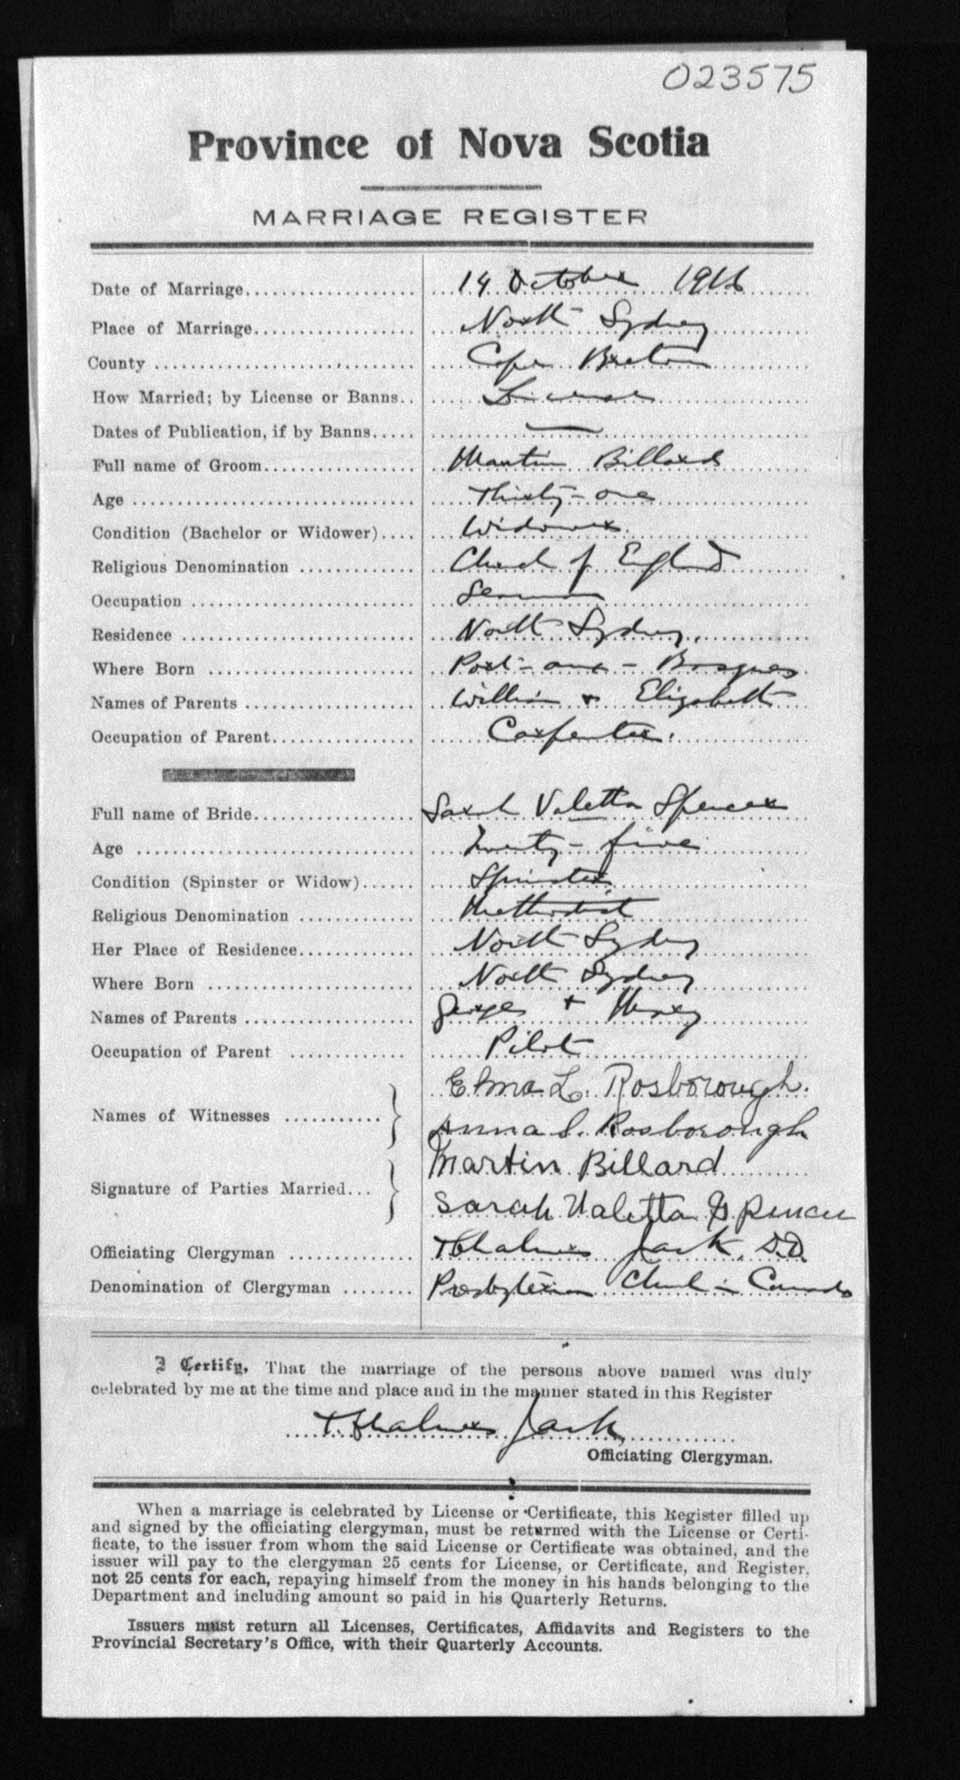 023575
Province of Nova Scotia
MARRIAGE REGISTER
Date of Marriage 14 October 1916
Place of Marriage North Sydney
County Cape Breton
How Married; by License or Banns License
Dates of Publication, if by Banns —
Full name of Groom Martin Billard
Age Thirty-one
Condition (Bachelor or Widower) Widower
Religious Denomination Church of England
Occupation Seaman
Residence North Sydney.
Where Born Port-aux-Basques
Names of Parents William + Elizabeth
Occupation of Parent Carpenter.
Full name of Bride Sarah Valetta Spencer
Age Twenty-five
Condition (Spinster or Widow) Spinster
Religious Denomination Methodist
Her Place of Residence North Sydney
Where Born North Sydney
Names of Parents George + Mary
Occupation of Parent Pilot
Elma L. Rosborough.
Names of Witnesses
Anna S. Rosborough
Martin Billard
Signature of Parties Married
Sarah Valetta Spencer
Officiating Clergyman T. Chalmers Jack, D.D.
Denomination of Clergyman Presbyterian Church in Canada
I Certify, That the marriage of the persons above named was duly
celebrated by me at the time and place and in the manner stated in this Register
T. Chalmers Jack,
Officiating Clergyman.
When a marriage is celebrated by License or Certificate, this Register filled up
and signed by the officiating clergyman, must be returned with the License or Certi-
ficate, to the issuer from whom the said License or Certificate was obtained, and the
issuer will pay to the clergyman 25 cents for License, or Certificate, and Register,
not 25 cents for each, repaying himself from the money in his hands belonging to the
Department and including amount so paid in his Quarterly Returns.
Issuers must return all Licenses, Certificates, Affidavits and Registers to the
Provincial Secretary's Office, with their Quarterly Accounts.